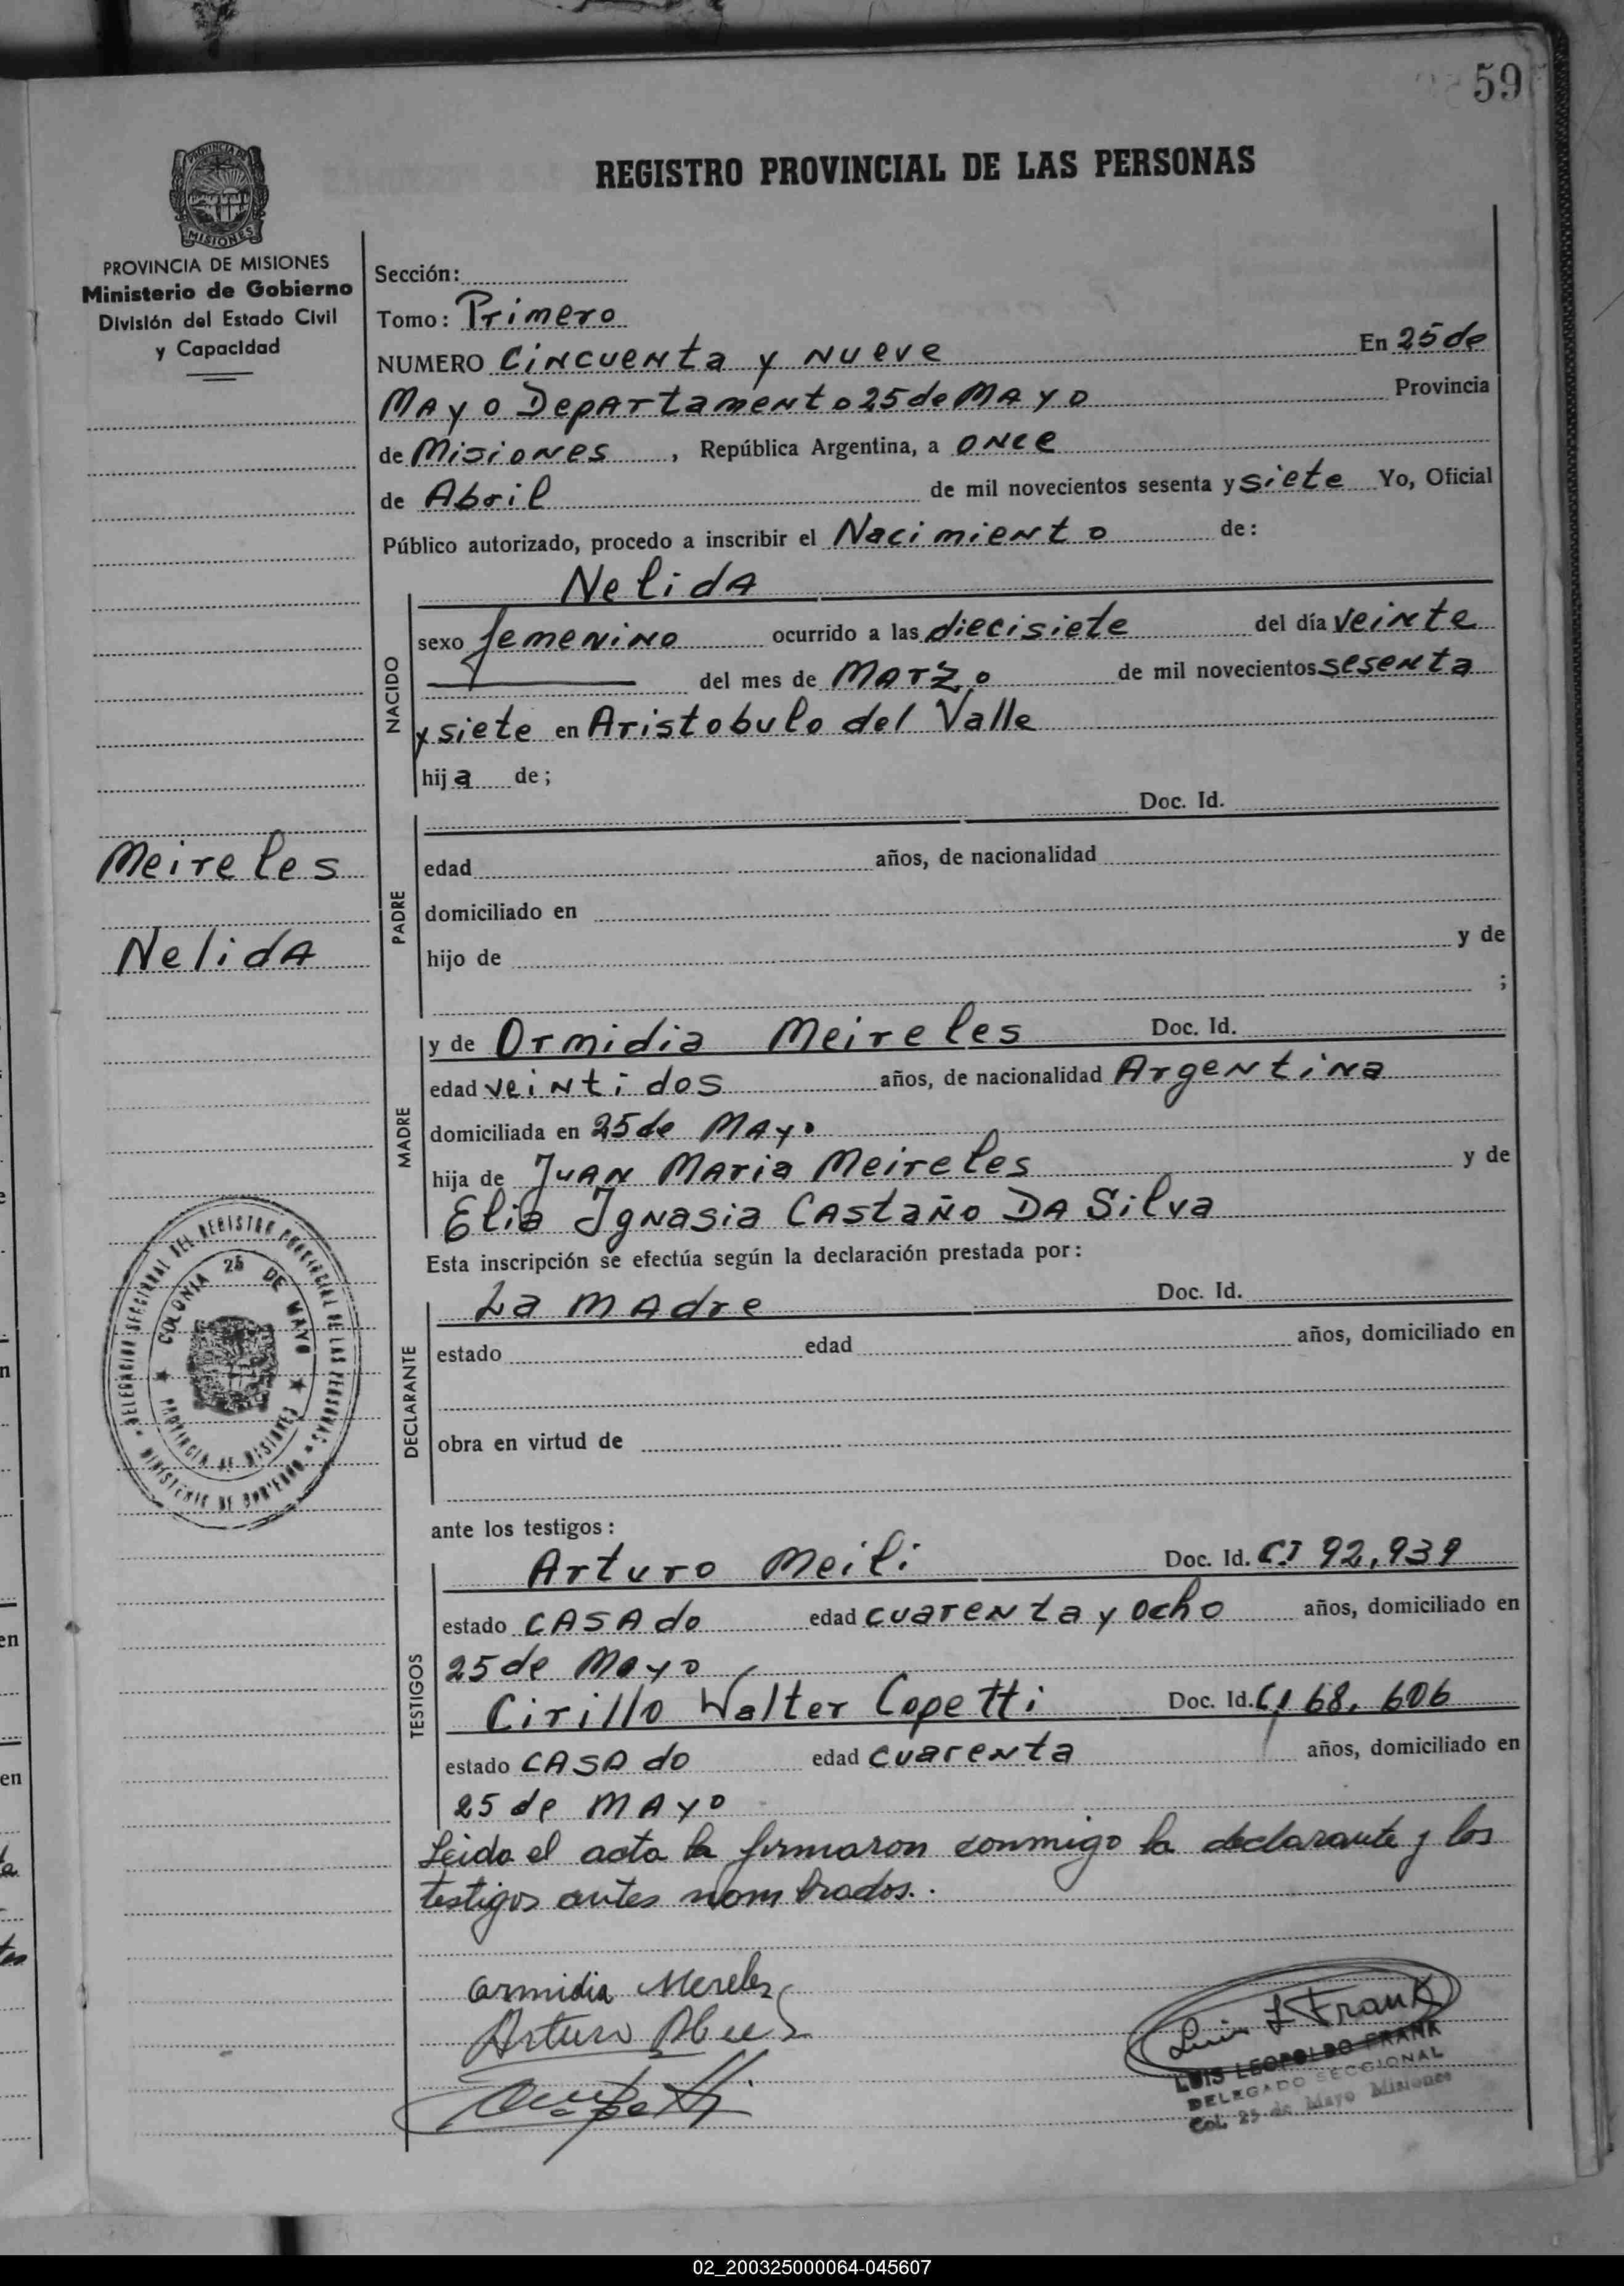 59
REGISTRO PROVINCIAL DE LAS PERSONAS
PROVINCIA DE MISIONES
MISIONES
PROVINCIA DE MISIONES
Ministerio de Gobierno
División del Estado Civil
y Capacidad
Sección:
Tomo: Primero
NUMERO Cincuenta y nueve En 25 de
Mayo Departamento 25 de Mayo Provincia
de Misiones, República Argentina, a once
de Abril de mil novecientos sesenta y siete Yo, Oficial
Público autorizado, procedo a inscribir el Nacimiento de:
NACIDO
Nelida
sexo femenino ocurrido a las diecisiete del día veinte
del mes de Marzo de mil novecientos sesenta
y siete en Aristobulo del Valle
hija de;
PADRE
Doc. Id.
edad años, de nacionalidad
domiciliado en
hijo de y de
;
Meireles
Nelida
MADRE
y de Ormidia Meireles Doc. Id.
edad veintidos años, de nacionalidad Argentina
domiciliada en 25 de Mayo
hija de Juan Maria Meireles y de
Elia Ignasia Castaño Da Silva
Esta inscripción se efectúa según la declaración prestada por:
DECLARANTE
La madre Doc. Id.
estado edad años, domiciliado en
obra en virtud de
DELEGACION SECCIONAL DEL REGISTRO PROVINCIAL DE LAS PERSONAS
MINISTERIO DE GOBIERNO
COLONIA 25 DE MAYO
PROVINCIA DE MISIONES
ante los testigos:
TESTIGOS
Arturo Meili Doc. Id. CI 92,939
estado casado edad cuarenta y ocho años, domiciliado en
25 de Mayo
Cirillo Walter Copetti Doc. Id. CI 68.606
estado casado edad cuarenta años, domiciliado en
25 de Mayo
Leida el acta la firmaron conmigo la declarante y los
testigos antes nombrados.
Ormidia Mereles
Arturo
Luis L Frank
LUIS LEOPOLDO FRANK
DELEGADO SECCIONAL
Col. 25 de Mayo Misiones
02_200325000064-045607